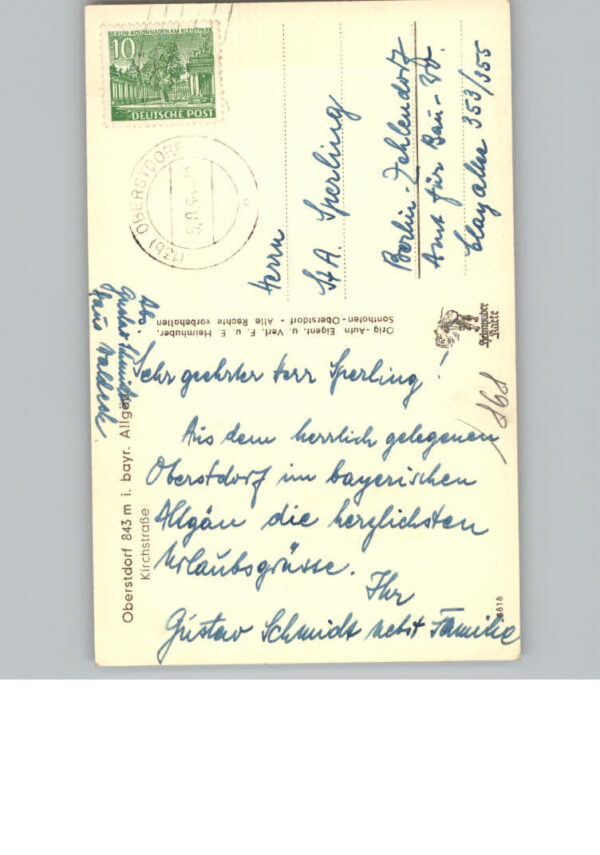 BERLIN-KOLONNADEN AM KLEISTPARK
10
DEUTSCHE POST
(13b) OBERSTDORF
Herrn
StA. Sperling
Berlin-Zehlendorf
Amt für Bau-
Clayalee 353/355
Abs
Gustav Schmidt
Haus Waldeck
Orig.-Aufn. Eigent. u. Verl. F. u. E. Heimhuber,
Sonthofen-Oberstdorf - Alle Rechte vorbehalten
Schöning
Karte
Sehr geehrter Herr Sperling!
Aus dem herrlich gelegenen
Oberstdorf im bayerischen
Allgäu die herzlichsten
Urlaubsgrüsse.
Ihr
Gustav Schmidt nebst Familie
Oberstdorf 843 m i. bayr. Allgäu
Kirchstraße